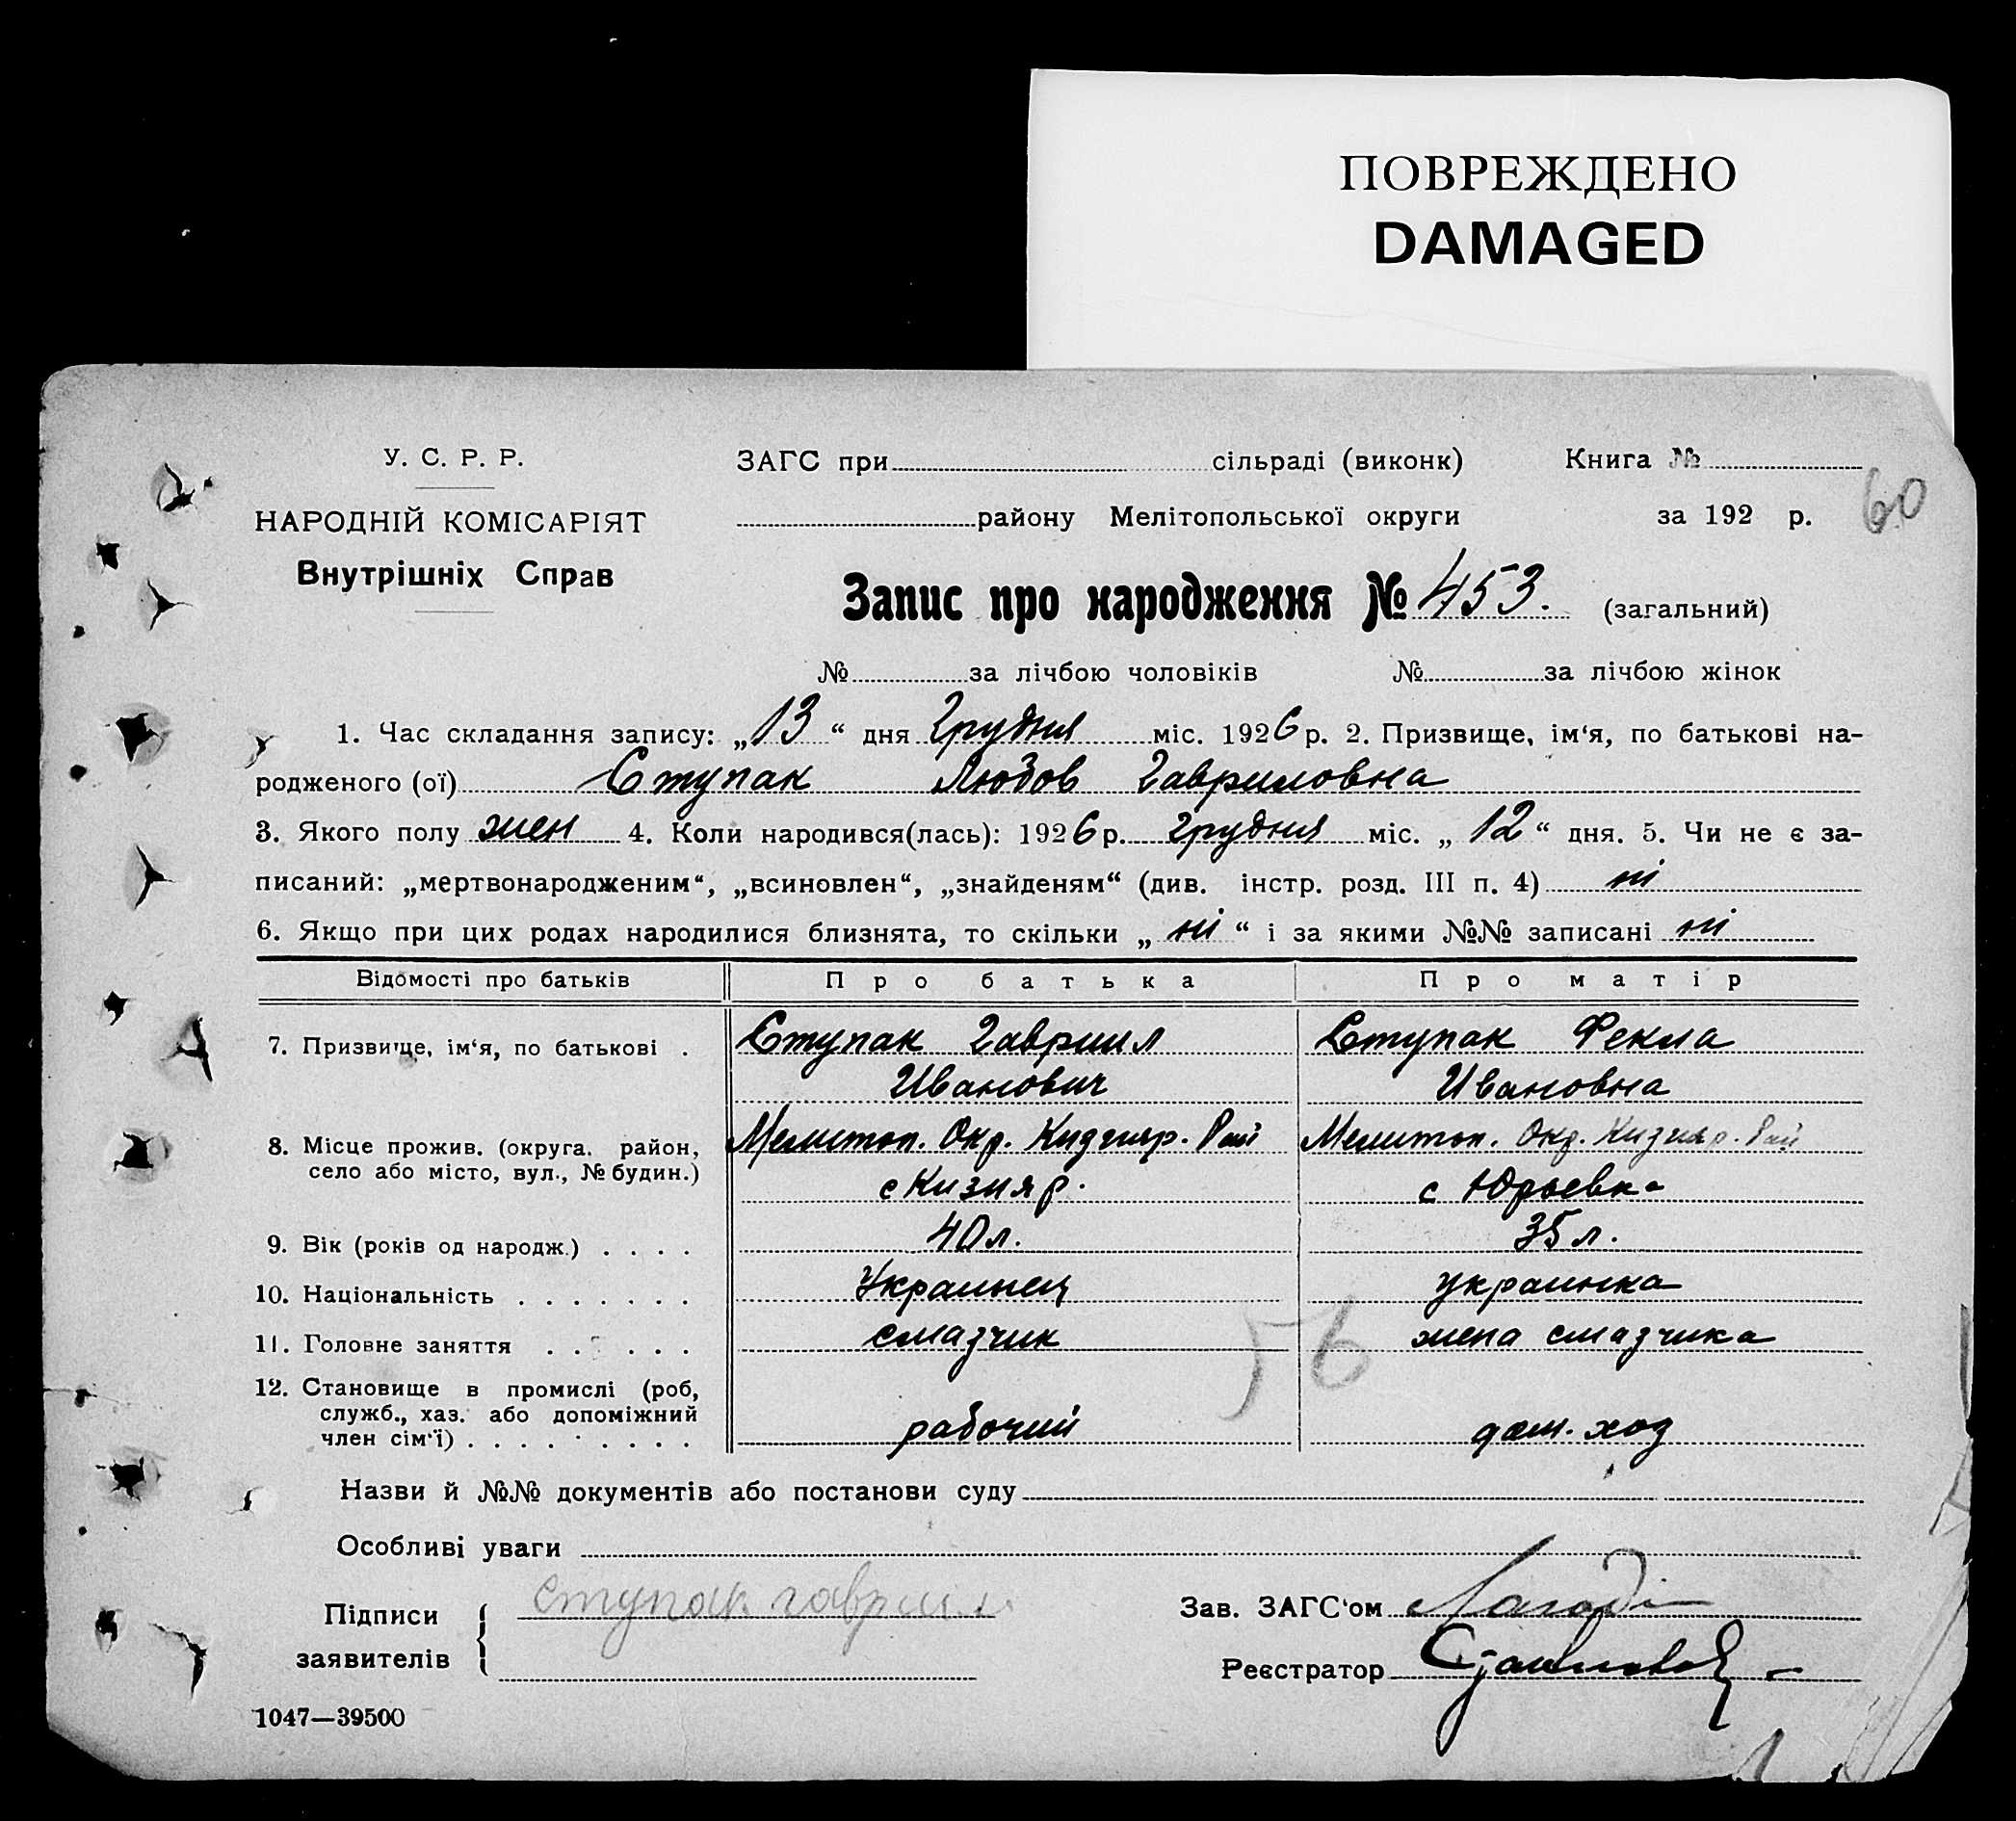 ПОВРЕЖДЕНО
DAMAGED
У. С. Р. Р.
НАРОДНІЙ КОМІСАРІЯТ
Внутрішніх Справ
ЗАГС при сільраді (виконк) Книга №
району Мелітопольської округи за 192 р.
60
Запис про народження № 453. (загальний)
№ за лічбою чоловіків № за лічбою жінок
1. Час складання запису: „13“ дня Грудня міс. 1926 р. 2. Призвище, ім‘я, по батькові на-
родженого (ої) Ступак Любов Гавриловна
3. Якого полу жен 4. Коли народився(лась): 1926 р. грудня міс. „12“ дня. 5. Чи не є за-
писаний: „мертвонародженим“, „всиновлен“, „знайденям“ (див. інстр. розд. III п. 4) ні
6. Якщо при цих родах народилися близнята, то скільки „ні“ і за якими №№ записані ні
Відомості про батьків Про батька Про матір
7. Призвище, ім‘я, по батькові . Ступак Гавриил Ступак Фекла
Иванович Ивановна
8. Місце прожив. (округа, район, Мелитоп. Окр. Кизияр. Рай Мелитоп. Окр. Кизияр. Рай
село або місто, вул., № будин.) с Кизияр. с Юрьевка
9. Вік (років од народж.) . . . . 40 л. 35 л.
10. Національність . . . . . . . Украинец украинка
11. Головне заняття . . . . . . смазчик жена смазчика
56
12. Становище в промислі (роб,
служб., хаз. або допоміжний
член сім‘ї) . . . . . . . . . рабочий дом. хоз
Назви й №№ документів або постанови суду
Особливі уваги
Підписи ступак гавриил Зав. ЗАГС‘ом
заявителів Реєстратор
1047—39500